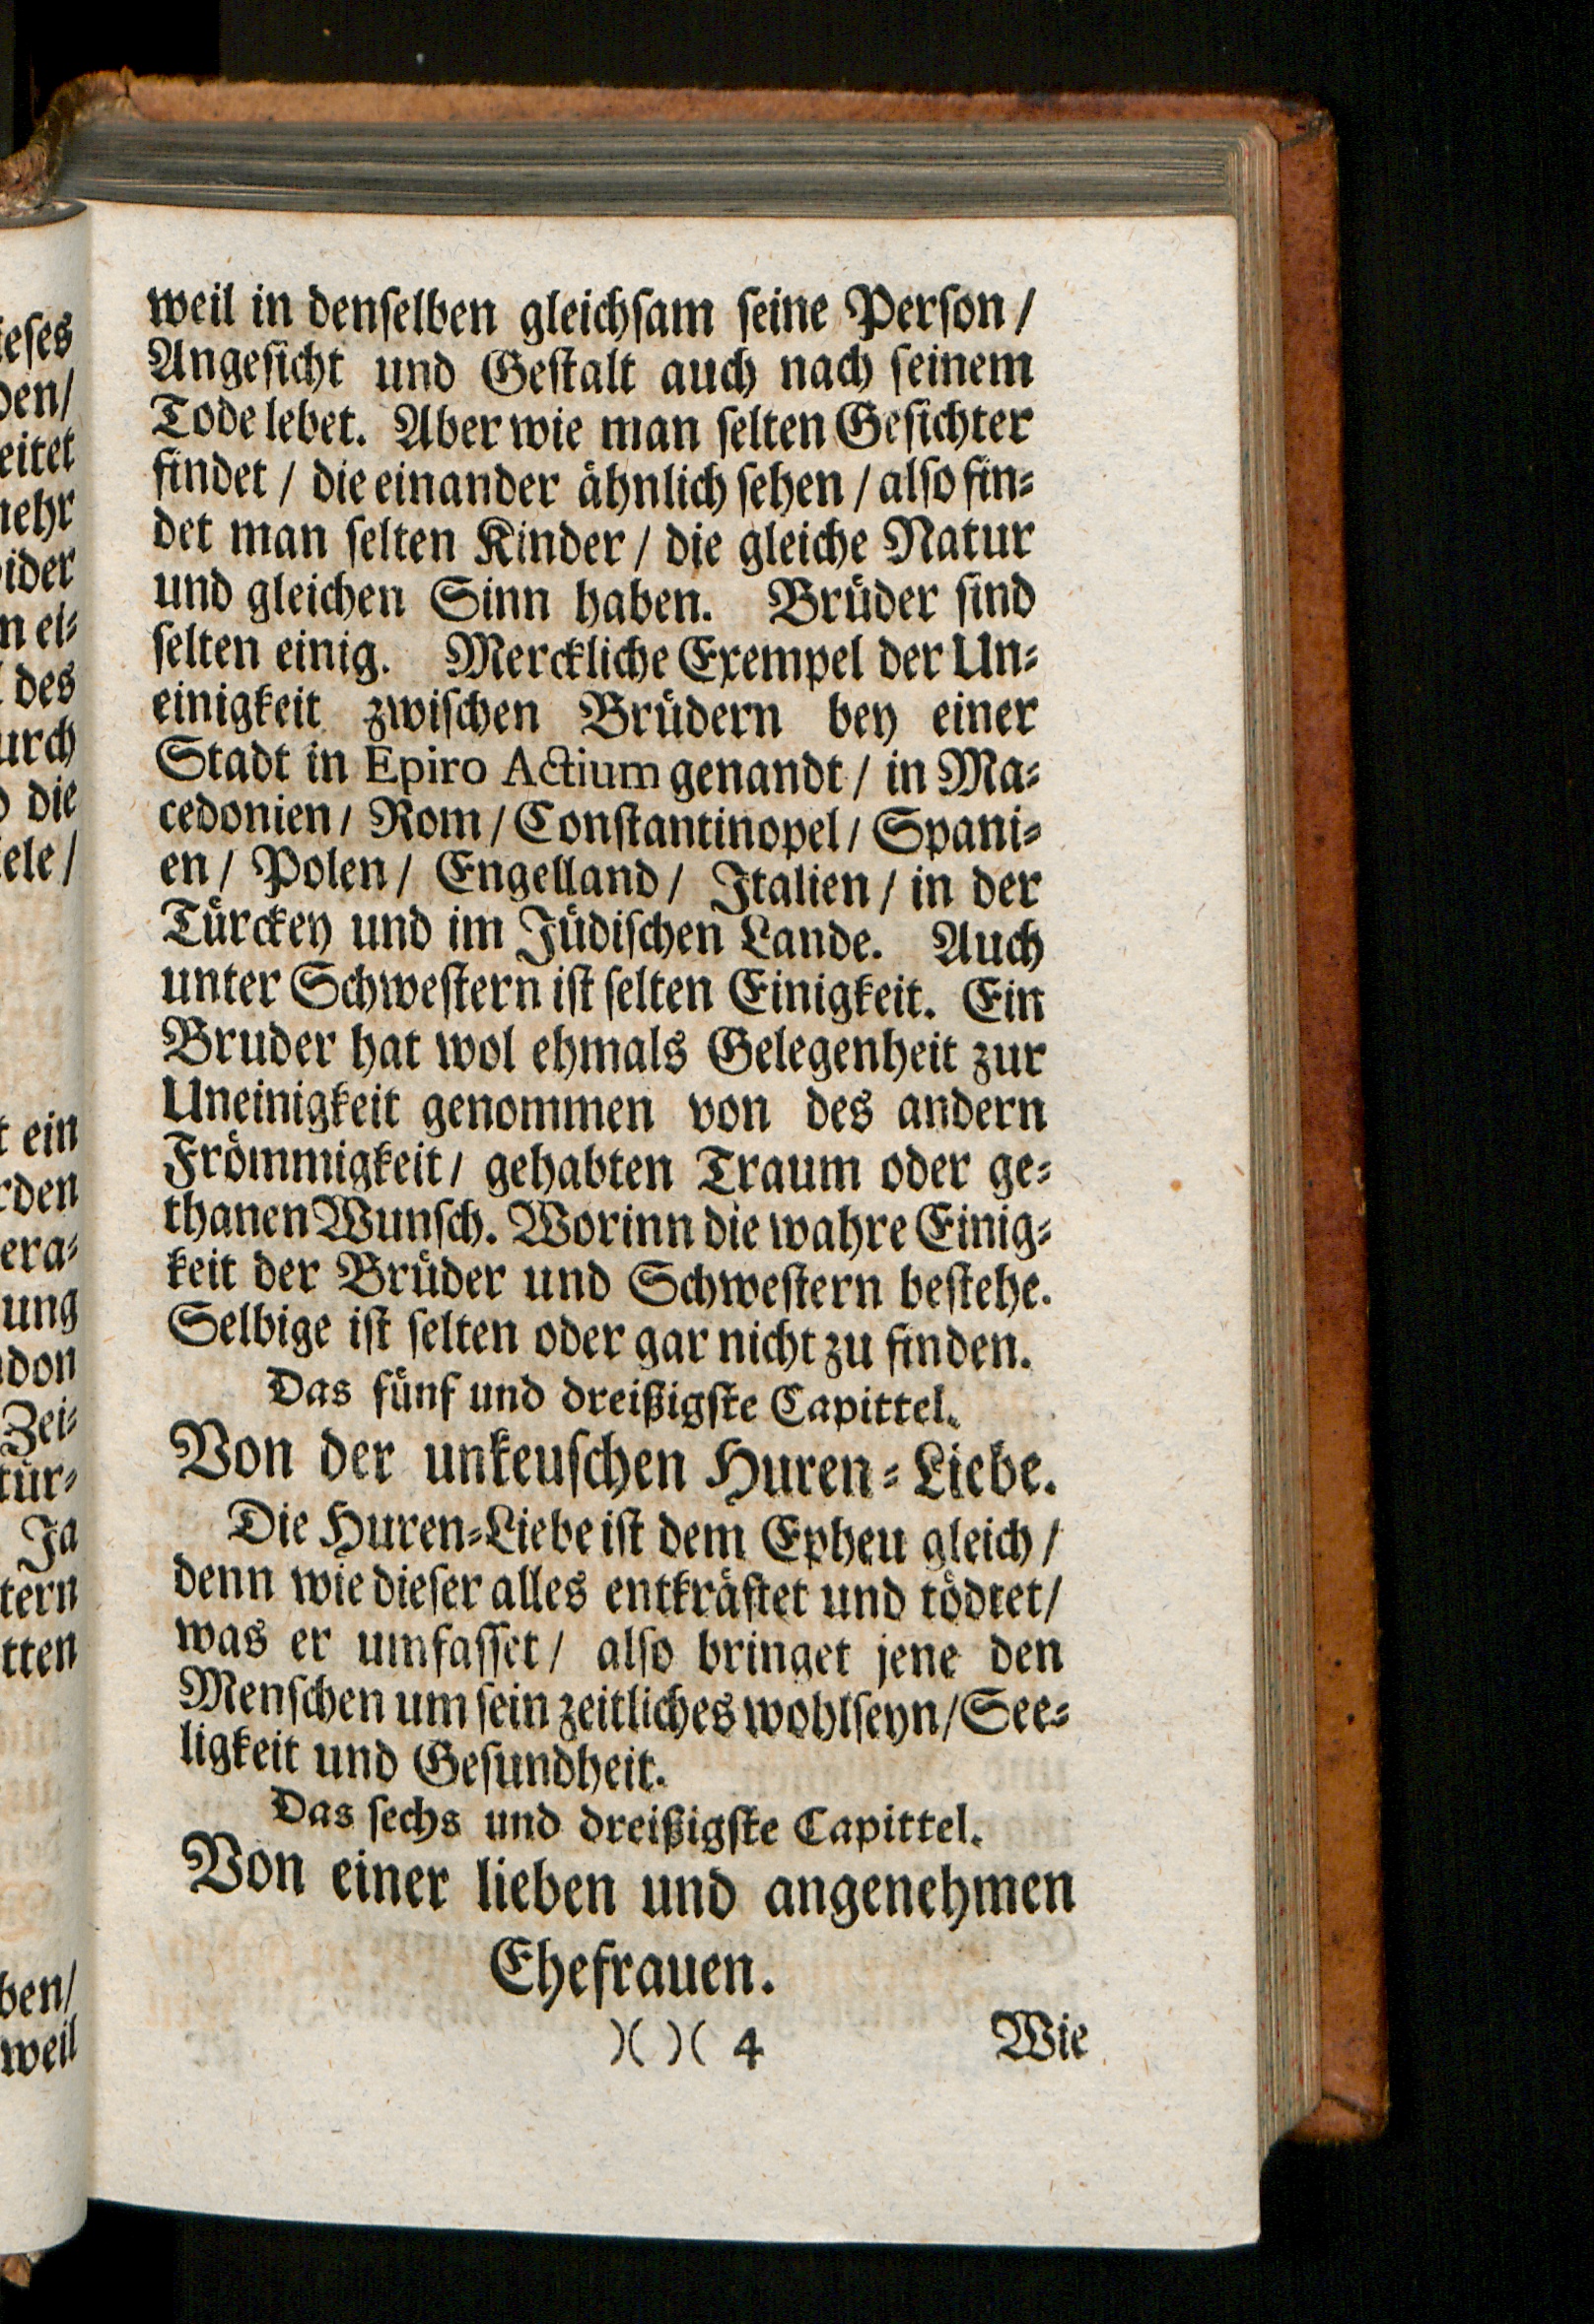 weil in denſelben gleichſam ſeine Perſon /
Angeſicht und Geſtalt auch nach ſeinem
Tode lebet. Aber wie man ſelten Geſichter
findet / die einander aͤhnlich ſehen / alſo fin⸗
det man ſelten Kinder / die gleiche Natur
und gleichen Sinn haben. Bruͤder ſind
ſelten einig. Merckliche Exempel der Un⸗
einigkeit zwiſchen Bruͤdern bey einer
Stadt in Epiro Actium genandt / in Ma⸗
cedonien / Rom / Conſtantinopel / Spani⸗
en / Polen / Engelland / Italien / in der
Tuͤrckey und im Juͤdiſchen Lande. Auch
unter Schweſtern iſt ſelten Einigkeit. Ein
Bruder hat wol ehmals Gelegenheit zur
Uneinigkeit genommen von des andern
Froͤmmigkeit / gehabten Traum oder ge⸗
thanen Wunſch. Worinn die wahre Einig⸗
keit der Bruͤder und Schweſtern beſtehe.
Selbige iſt ſelten oder gar nicht zu finden.
Das fuͤnf und dreißigſte Capittel.
Von der unkeuſchen Huren⸗Liebe.
Die Huren⸗Liebe iſt dem Epheu gleich /
denn wie dieſer alles entkraͤftet und toͤdtet /
was er umfaſſet / alſo bringet jene den
Menſchen um ſein zeitliches wohlſeyn / See⸗
ligkeit und Geſundheit.
Das ſechs und dreißigſte Capittel.
Von einer lieben und angenehmen
Ehefrauen.
)( )( 4 Wie